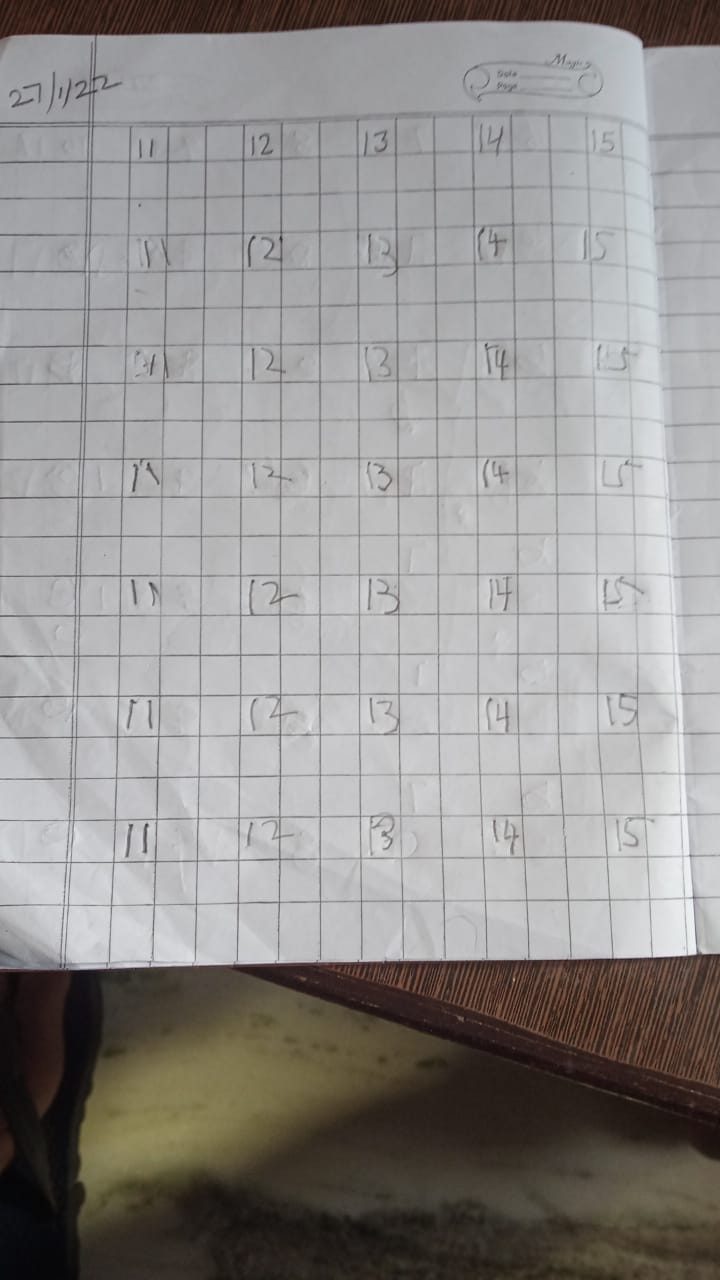 27/1/22
Date
Page
11 12 13 14 15
11 12 13 14 15
11 12 13 14 15
11 12 13 14 15
11 12 13 14 15
11 12 13 14 15
11 12 13 14 15